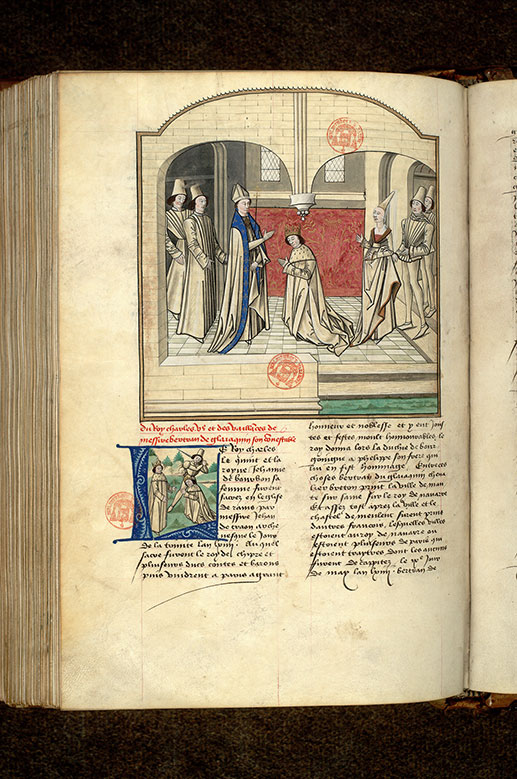 du Roy charles V et des vaillāces de
messire bertran de glaiaquin son conestable
LE Roy charles
le quint et la
royne Jehanne
de bourbon sa
femme furent
sacrez en leglise
de rains par
messire Jehan
de craon arche
uesque le Jour
De la trinite lan lxiiii Auquel
sacre furent le roy de chipre et
plusieurs ducs contes et barons
puis vindrent a paris a grant
honneur et noblesse et y eut jous
tes et festes moult honnourables le
roy donna lors la duchie de bour
gōnigne a phelippe son frere qui
lui en fist hommage Entre ces
choses bertran du glaiaquin cheua
lier breton print la ville de man
te sur saine sur le roy de nauarre
Et assez tost apres la ville et le
chastel de meulent furent prins
dautres francois lesquelles villes
estoient au roy de nauarre ou
estoient plusieurs de paris qui
estoient traytres dont les aucuns
furent decappitez le ix Jour
De may lan lxiiii bertran de